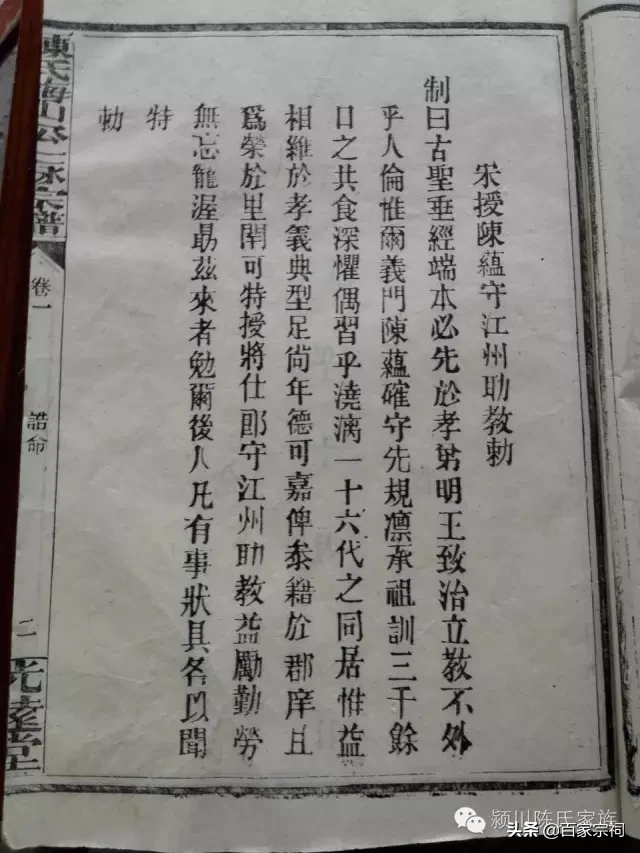 宋授陳蘊守江州助教勅
制曰古聖垂經端本必先於孝弟明王致治立教不外
乎人倫惟爾義門陳蘊確守先規凛承祖訓三千餘
口之共食深懼偶習乎澆漓一十六代之同居惟益
相維於孝義典型足尚年德可嘉俾叅籍於郡庠且
爲榮於里閈可特授將仕郎守江州助教益勵勤勞
無忘寵渥勗茲來者勉爾後人凡有事狀具名以聞
特
勅
陳氏梅山公
宗譜
卷一
誥命
二
光遠堂
颍川陈氏家族
头条 @百家宗祠